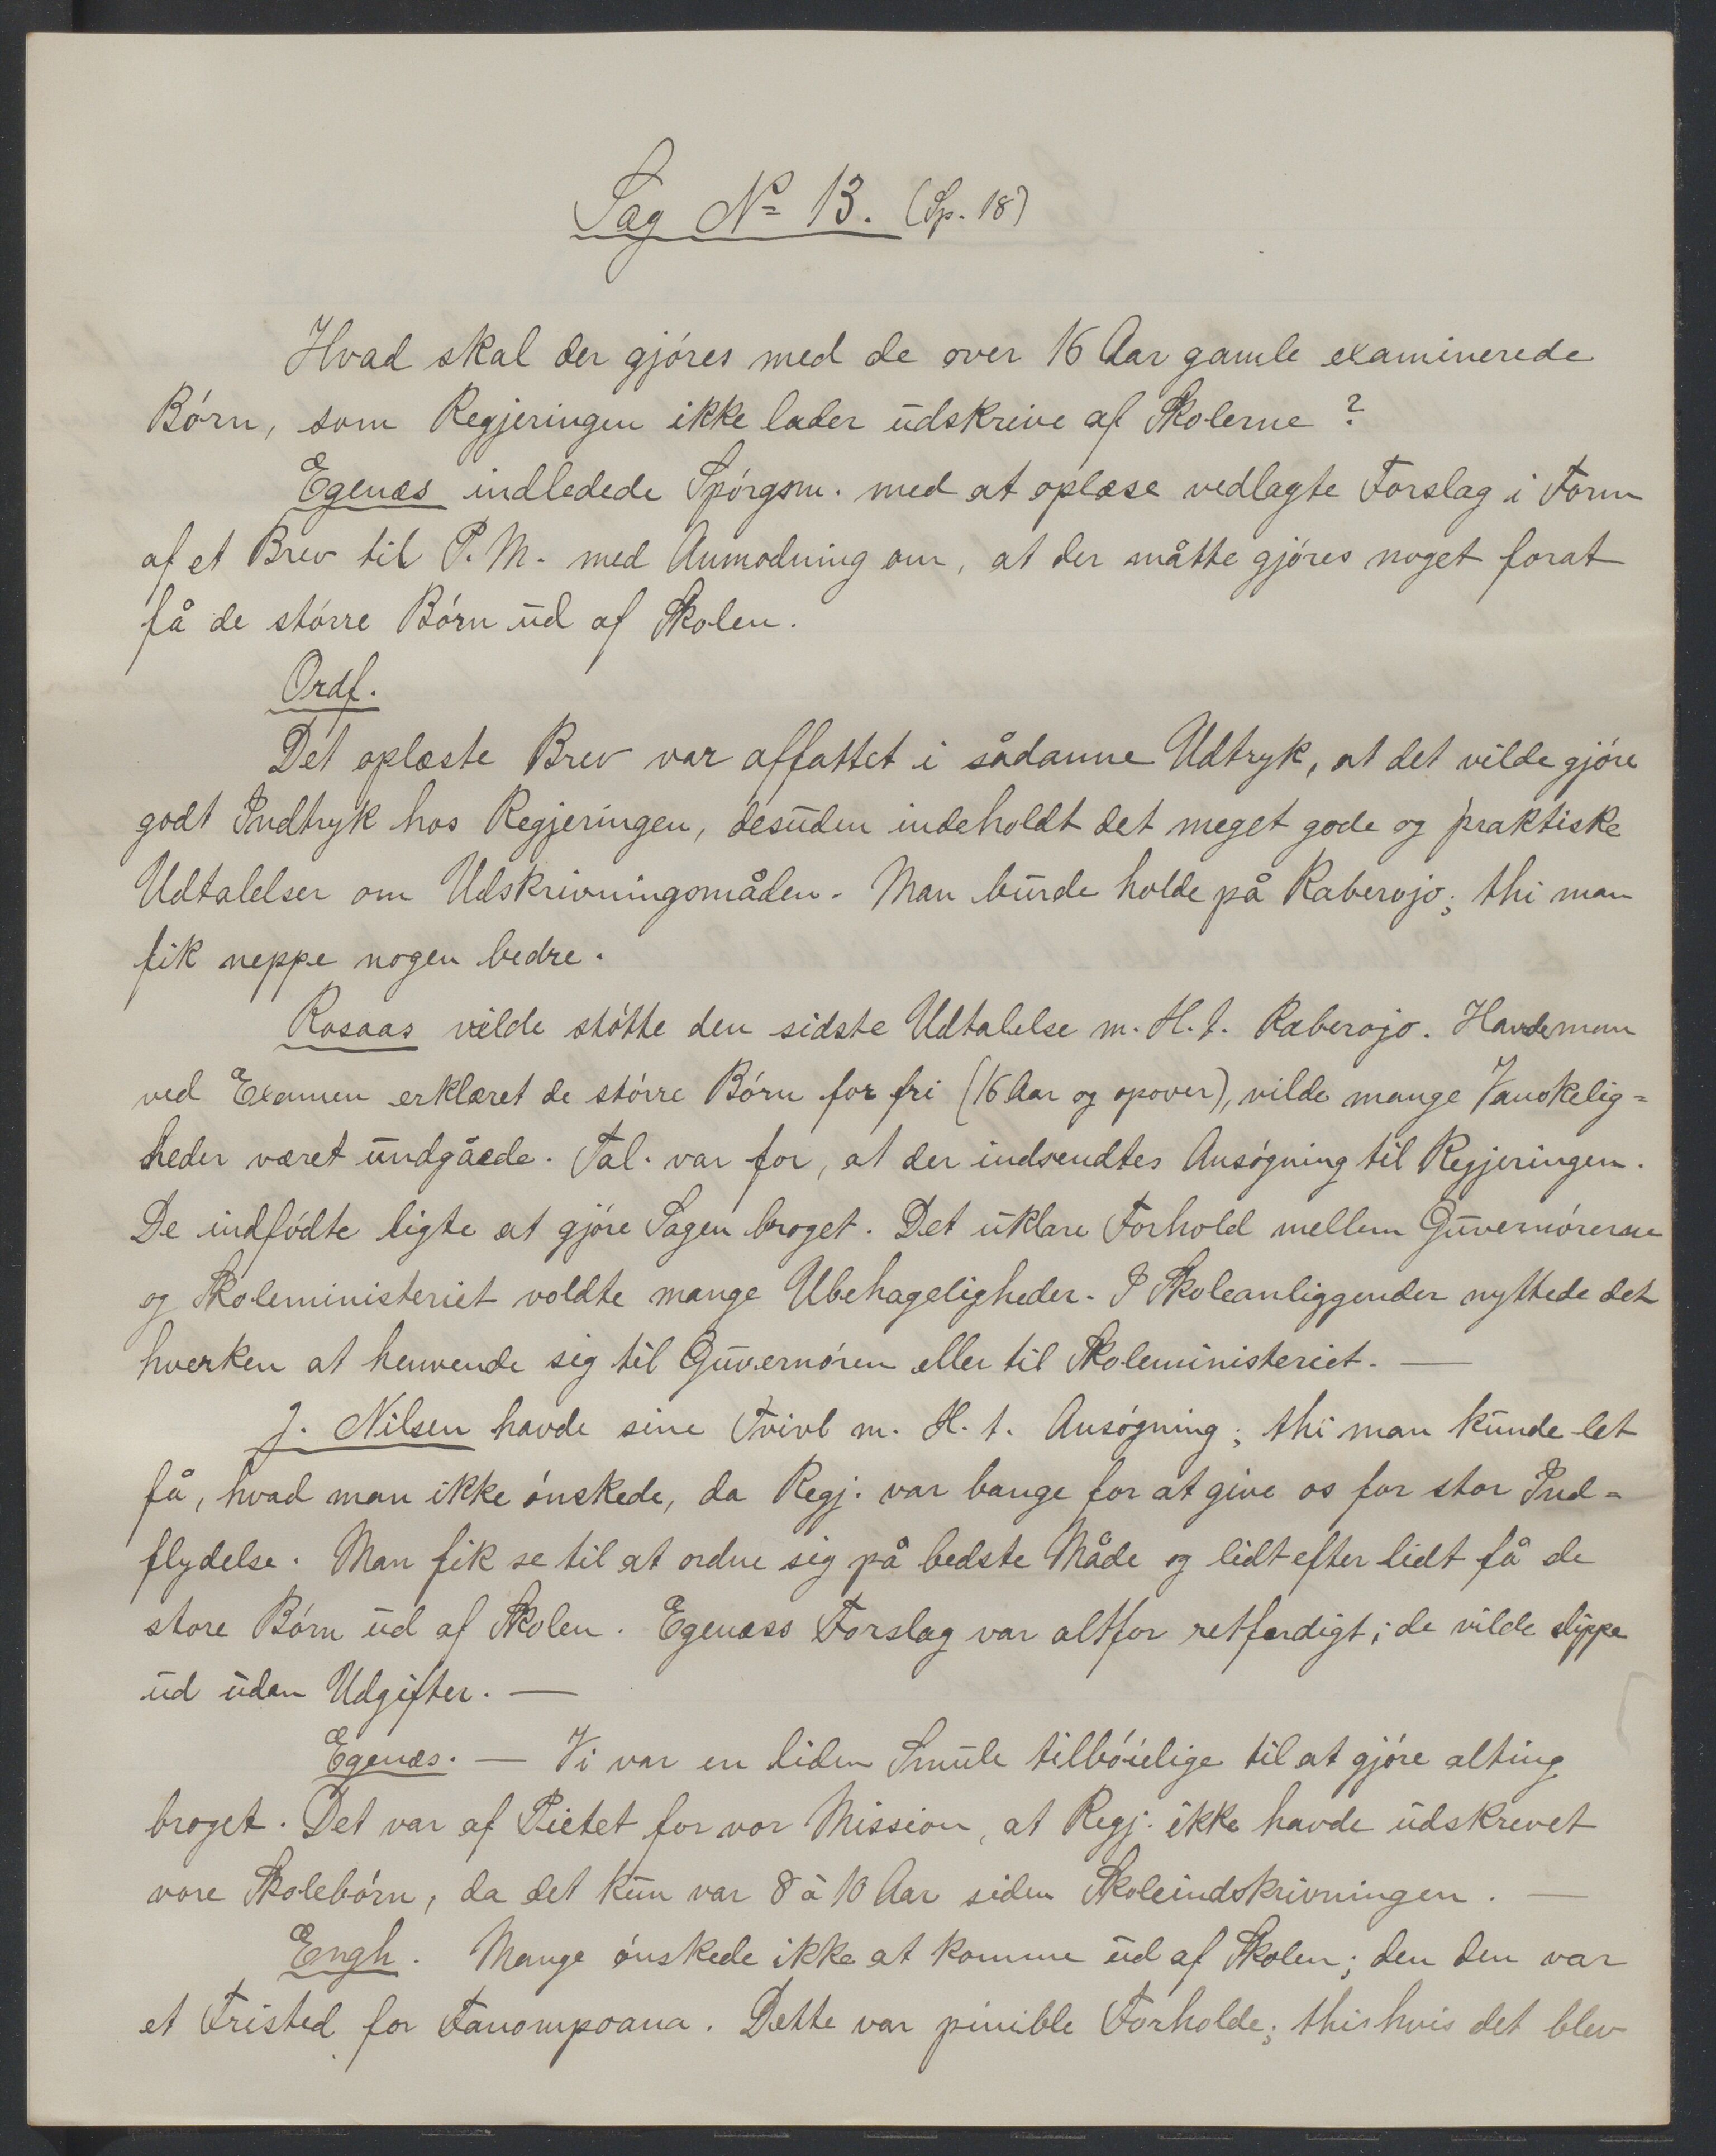 Sag № 13. (Sp. 18)
Hvad skal der gjóres med de over 16 Aar gamle examinerede
Bórn, som Regjeringen ikke lader udskrive af Skolerne ?
Egenæs indledede Spórgsm. med at oplæse vedlagte Forslag i Form
af et Brev til P. M. med Anmodning om, at der måtte gjóres noget forat
få de stórre Bórn ud af Skolen.
Ordf.
Det oplæste Brev var affattet i sådanne Udtryk, at det vilde gjóre
godt Indtryk hos Regjeringen, desuden indeholdt det meget gode og praktiske
Udtalelser om Udskrivningsmåden. Man burde holde på Raberojo; thi man
fik neppe nogen bedre.
Rosaas vilde stótte den sidste Udtalelse m. H. t. Raberojo. Havde man
ved Examen erklæret de stórre Bórn for fri (16 Aar og opover), vilde mange Vanskelig=
heder været undgåede. Tal. var for, at der indsendtes Ansógning til Regjeringen.
De indfódte ligte at gjóre Sagen broget. Det uklare Forhold mellem Guvernórerne
og Skoleministeriet voldte mange Ubehageligheder. I Skoleanliggender nyttede det
hverken at henvende sig til Guvernóren eller til Skoleministeriet. —
J. Nilsen havde sine Tvivl m. H. t. Ansógning; thi man kunde let
få, hvad man ikke ónskede, da Regj. var bange for at give os for stor Ind=
flydelse. Man fik se til at ordne sig på bedste Måde og lidt efter lidt få de
store Bórn ud af Skolen. Egenæss Forslag var altfor retferdigt; de vilde slippe
ud uden Udgifter. —
Egenæs. — Vi var en liden Smule tilbóielige til at gjóre alting
broget. Det var af Pietet for vor Mission, at Regj. ikke havde udskrevet
vore Skolebórn, da det kun var 8 à 10 Aar siden Skoleindskrivningen. —
Engh. Mange ónskede ikke at komme ud af Skolen; den den var
et Fristed for Fanompoana. Dette var pinible Forholde; thi hvis det blev